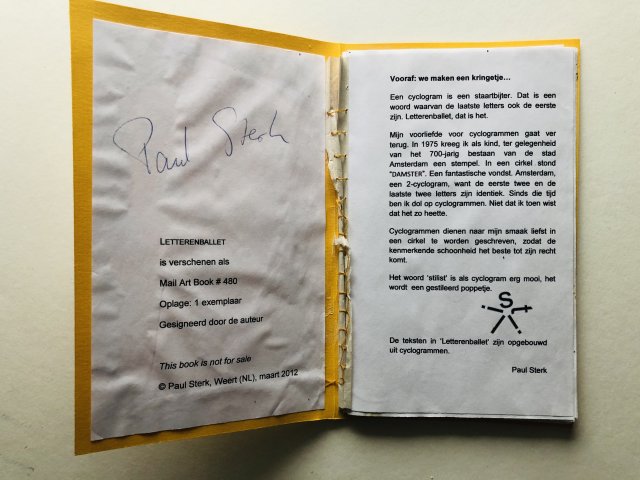 Paul Sterk
LETTERENBALLET
is verschenen als
Mail Art Book # 480
Oplage: 1 exemplaar
Gesigneerd door de auteur
This book is not for sale
© Paul Sterk, Weert (NL), maart 2012
Vooraf: we maken een kringetje…
Een cyclogram is een staartbijter. Dat is een
woord waarvan de laatste letters ook de eerste
zijn. Letterenballet, dat is het.
Mijn voorliefde voor cyclogrammen gaat ver
terug. In 1975 kreeg ik als kind, ter gelegenheid
van het 700-jarig bestaan van de stad
Amsterdam een stempel. In een cirkel stond
"DAMSTER". Een fantastische vondst. Amsterdam,
een 2-cyclogram, want de eerste twee en de
laatste twee letters zijn identiek. Sinds die tijd
ben ik dol op cyclogrammen. Niet dat ik toen wist
dat het zo heette.
Cyclogrammen dienen naar mijn smaak liefst in
een cirkel te worden geschreven, zodat de
kenmerkende schoonheid het beste tot zijn recht
komt.
Het woord 'stilist' is als cyclogram erg mooi, het
wordt een gestileerd poppetje.
S
i t
i l
De teksten in 'Letterenballet' zijn opgebouwd
uit cyclogrammen.
Paul Sterk